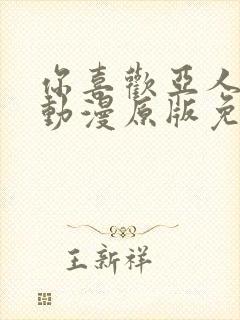 你喜歡亞人
動漫原版免
王新祥